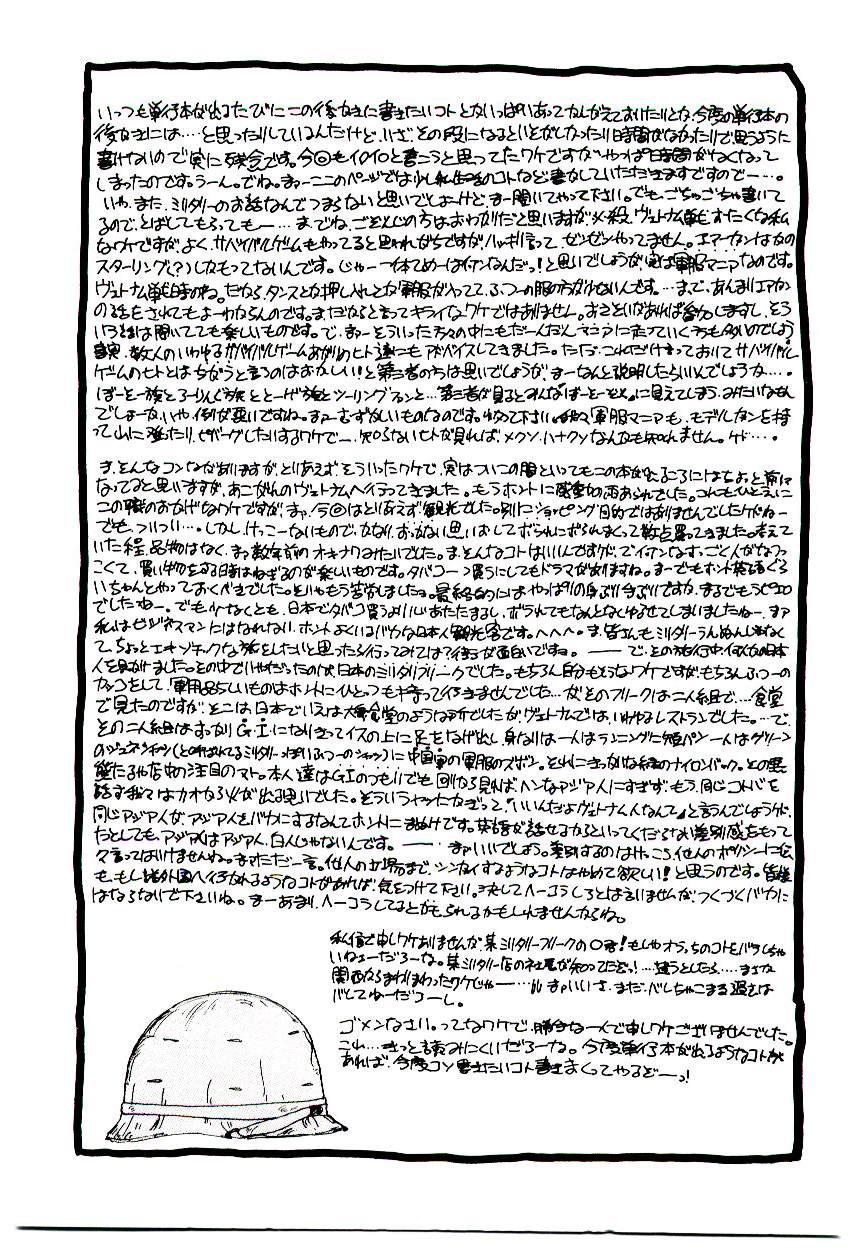 いっつも単行本が出るたびにこの後がきに書きたいコトとかいっぱいあってかんがえておいたりとか、今度の単行本の
後がきには…と思ったりしているんだけど、いざその段になるといそがしかったり時間がなかったりで思うように
書けないので実に残念です。今回もイロイロと書こうと思ってたワケですがやっぱ時間がなくなって
しまったのです。うーん。でね。まァーここのページでは少し私自身のコトなど書かしていただきますですのでー…。
いやまた、ミリタリーのお話なんでつまらないと思いでしょーけど、まー聞いてやって下さい。でもごちゃごちゃ書いて
るので、とばしてもらってもー…。までね、ごぞんじの方はおわかりだと思いますが、ヴェトナム戦争すたくな私
なワケですが、よく、サバイバルゲームもやってると思われがちですが、ハッキリ言って、ゼンゼンやってません。エアーガンはかの
スターリング(?)しかもってないんです。じゃー一体てめーはナンなんだっ!と思いでしょうが、実は軍服マニアなのです。
ヴェトナム戦時のね。だから、タンスとか押し入れとか軍服がいっぱいで、ふつーの服の方が少ないんです。…まで、あんまりエアガン
の話をされてもよーわからんのです。まただからと言ってキライなワケではありません。おさそいがあれば参加しますし、そう
いうときは聞いてても楽しいものです。で、まァーそういった方々の中にもだんだんマニアに走っていく方も多いのでしょう
事実、数人のいわゆるサバイバルゲームあがりのヒト達にもアドバイスしてきました。ただ、これだけ言っておいてサバイバル
ゲームのヒトとはちがうと言うのはおかしい!と第三者の方は思いでしょうが、まーなんと説明したらいいんでしょうか…。
ぼーそー族とろーりんぐ族ととーげ族とツーリングランと…第三者が見るとみんなぼーそー族に見えてしまう、みたいなもん
でしょーか、いや例が悪いですね。まァーむずかしいものなのです。わかって下さい。軍服マニアも、モデルガンを持
って山に登ったり、ビバーグしたりするワケでー、知らないヒトが見れば、メクソ、ハナクソなんかも知れません。ケド…。
ま、そんなコンながありますが、とりあえずそういったワケで、実はついこの間といってもこの本が出るころにはちょっと前に
なってると思いますが、あこがれのヴェトナムへ行ってきました。もうホントに感動の雨あられでした。これもひとえに
この職のおかげなワケですが、まァ、今回はとりあえず観光でした。別にショッピング目的ではありませんでしたケドねー
でも、ついつい…。しかし、けっこーないもので、かなり、おっかない思いおしてボラれにボられまくって数点買ってきました。考えて
いた程、品物はなく、まァ数年前のオキナワみたいでした。ま、そんなコトはいいんですケド、でイナカなすごく人がなつ
っこくて、買い物をする時はねぎるのが楽しいものです。タバコ一つ買うにしてもドラマがありますね。まーでもホント英語ぐら
いちゃんとやっておくべきでした。そりゃもう苦労しました。最終的にはやっぱり身ぶり手ぶりですか、まるでもうピエロ
でしたねー。でも少なくとも、日本でタバコ買うよりいいあたたまるし、ボラれてもなんとなくゆるせてしまいましたねー。まァ
私はビジネスマンにはなれない、ホントよくいるバカな日本人観光客です。へへへ。ま、皆さんもミリタリーうんぬんじゃなく
て、ちょっとエキゾチックな旅をしたいと思ったら行ってみてはマイ行が面白いですね。——で、その旅行中何人かの日本
人を見かけました。その中でいやだったのが、日本のミリタリフリークでした。もちろん自分もそうなワケですがもちろんふつーの
カッコをして、軍用品らしいものはホントにひとつも持って行きませんでした…がそのフリークは二人組で…食堂
で見たのですが、そこは、日本でいえば大衆食堂のような所でしたが、ヴェトナムでは、いわゆるレストランでした。…で、
その二人組はすっかりG.I.になりきってイスの上に足をなげ出し、身なりは一人はランニングに短パン一人はグリーン
のジャングルシャツ(と呼ばれてるミリタリーっぽいふつーのシャツ)に中国軍の軍服のズボン。それにきっかなみのナイロンバック。その異
態たるや店中の注目のマト。本人達はG.I.のつもりでも回りから見ればヘンなアジア人にすぎず、もう、同じコトバを
話す我々はカオから火が出る思いでした。そういうヤツにかぎって「いいんだよヴェトナム人なんて」と言うんでしょうケド、
同じアジア人が、アジア人をバカにするなんてホントにまぬけです。英語が話せるからといってくだらない差別感をもって
たとしても、アジア人はアジア人、白人じゃないんです。——まァいいでしょう。差別するのはけっこう、他人のポリシーに広
々言ってはいけませんね。まァただ一言。他人の立場まで、シンガイするようなコトはやめて欲しい!と思うのです。皆様
も、もし諸外国へ行かれるようなコトがあれば、気をつけて下さい。決してヘーコラしろとは言いませんが、つくづくバカに
はならないで下さいね。まーあまり、ヘーコラしてるとかもられるかもしれませんからね。
私信で申しワケありませんが、某ミリタリーフリークの○君!もしやオラっちのコトをバラしちゃ
いねェーだろーな。某ミリタリー店の社長が知ってたぞっ!…違うとしたら……まさか
関西からまわりまわったワケじゃー…まァいいさ、まだ、バレしちゃこまる過去は
バレてねーだろーし。
ゴメンなさい。ってなワケで、勝手な一人で申しワケございませんでした。
これ…きっと読みにくいだろーな。今度単行本が出るようなコトが
あれば、今度コソ書きたいコト書きまくってやるぞーっ!